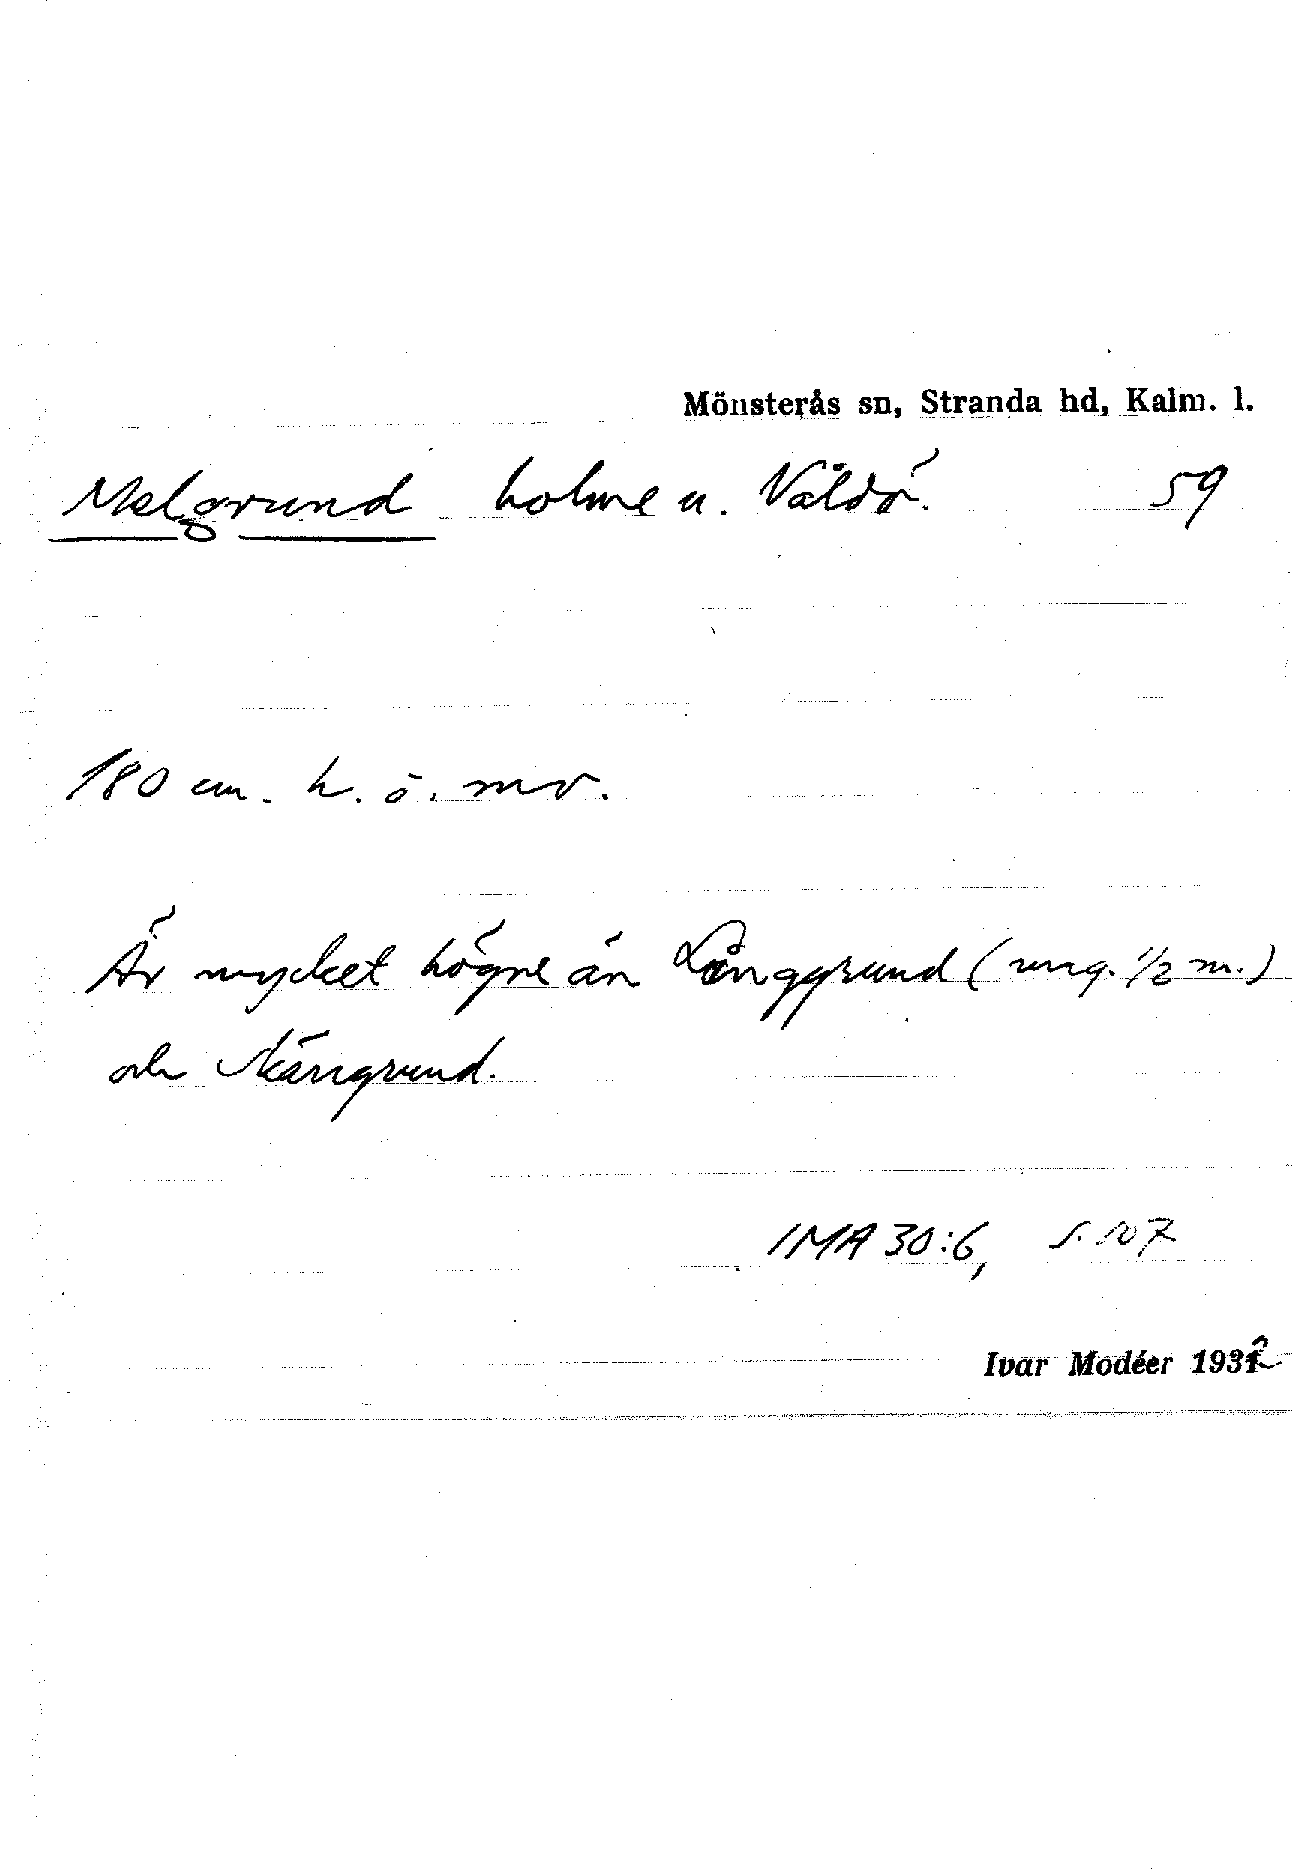 Mönsterås sn, Stranda hd, Kalm. l.
Melgrund holme n. Våldö. 59
180 cm. h. ö. mv.
Är mycket högre än Långgrund (ung. ½ m.)
och
IMA 30:6, s. 107
Ivar Modéer 1932